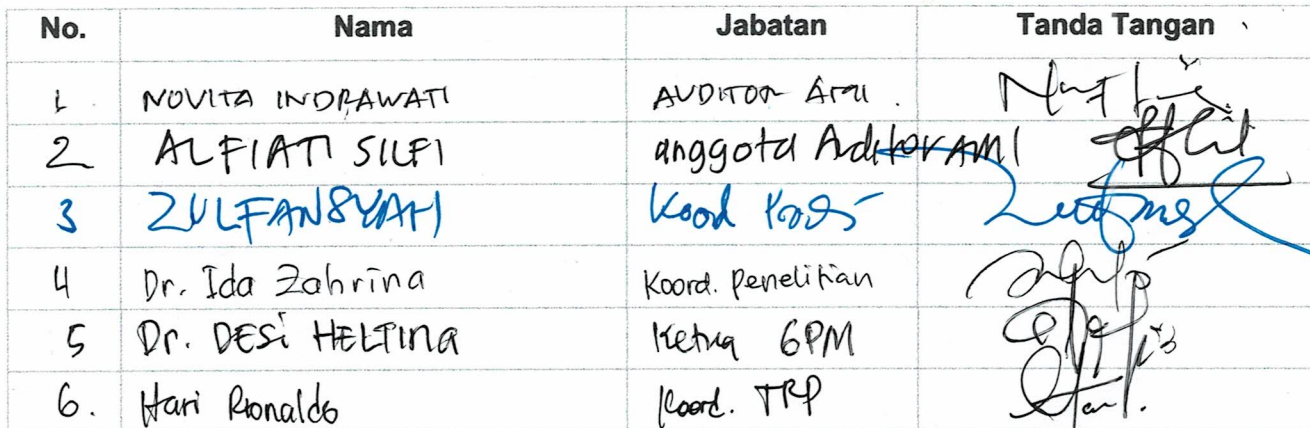 No. Nama Jabatan Tanda Tangan
1. NOVITA INDRAWATI AUDITOR AMI.
2 ALFIATI SILFI anggota Auditor AMI
3 ZULFANSYAH Koord Prodi
4 Dr. Ida Zahrina Koord. Penelitian
5 Dr. DESi HELTINA Ketua GPM
6. Hari Rionaldo Koord. TPP